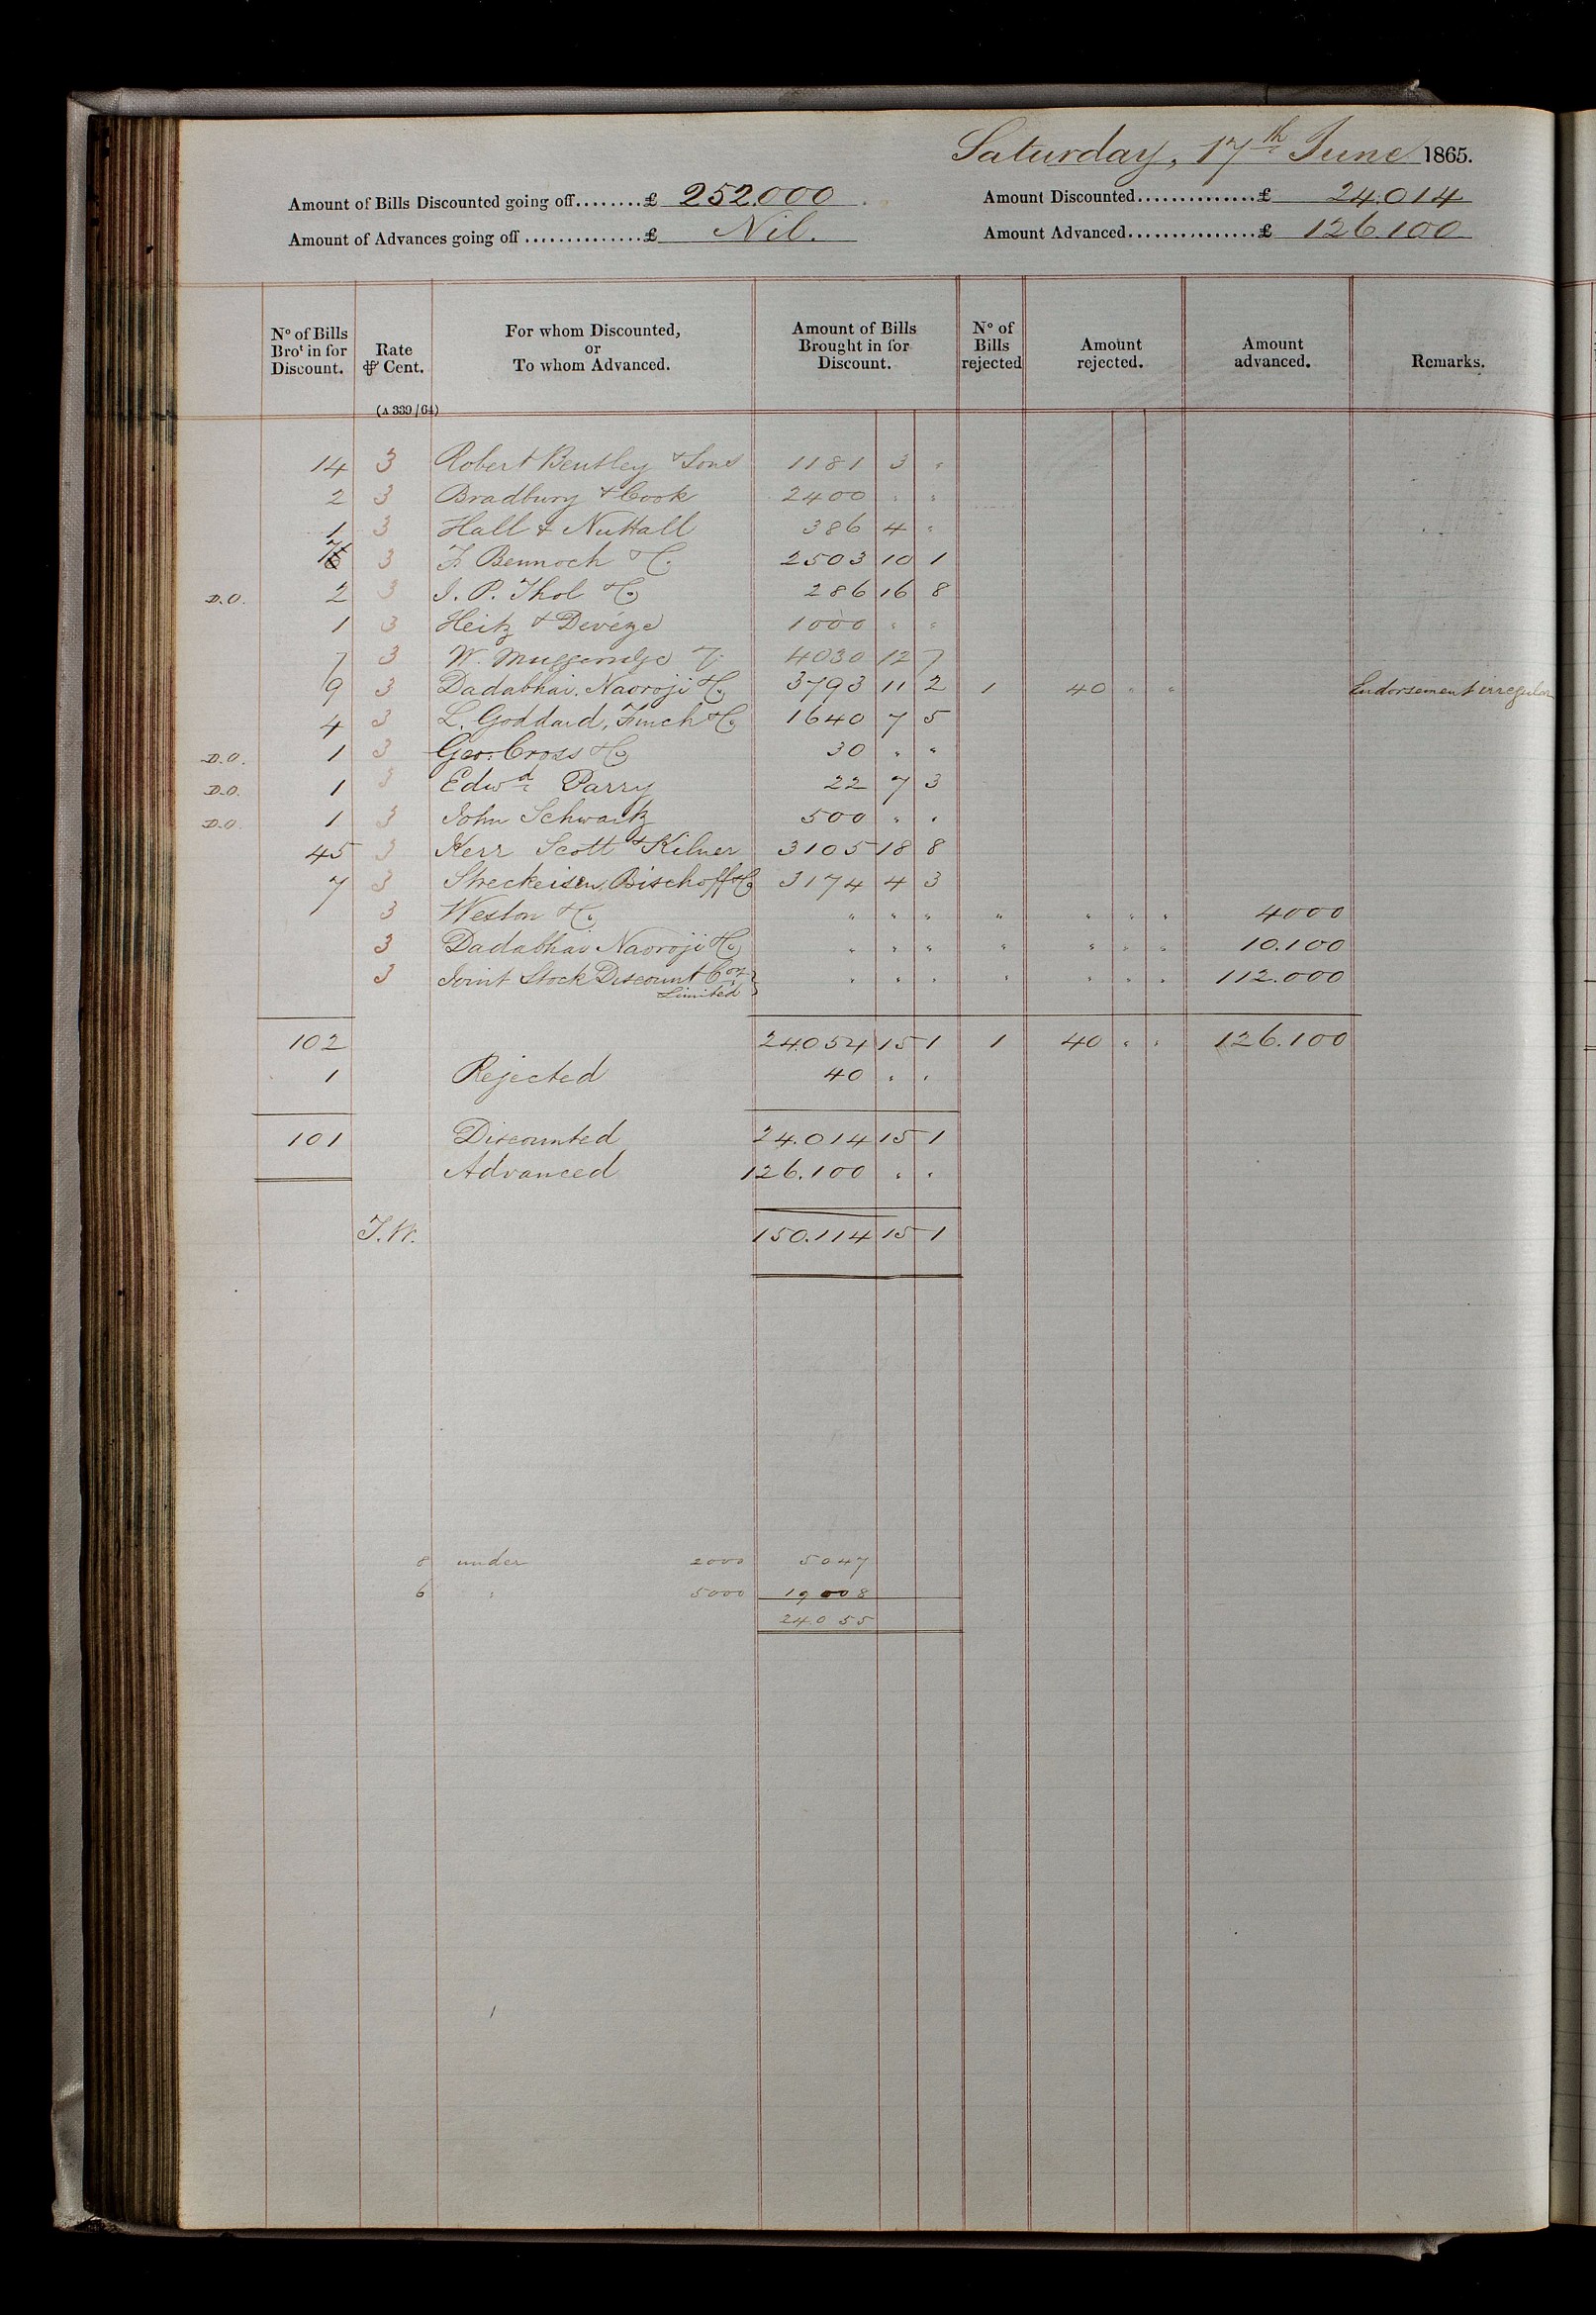 Saturday, 17th June 1865.
Amount of Bills Discounted going off........£ 252.000 Amount Discounted..............£ 24.014
Amount of Advances going off ..............£ Nil. Amount Advanced...............£ 126.100
No of Bills Brot in for Discount. Rate ⅌ Cent. For whom Discounted, or To whom Advanced. Amount of Bills Brought in for Discount. No of Bills rejected Amount rejected. Amount advanced. Remarks.
(A 339/64)
14 3 Robert Bentley & Sons 1181 3 "
2 3 Bradbury & Cook 2400 " "
1 3 Hall & Nuttall 386 4 "
7 3 F. Bennoch & Co. 2503 10 1
D.O. 2 3 J. P. Thol & Co 286 16 8
1 3 Heitz & Devéze 1000 " "
7 3 W. Muggeridge 4030 12 7
9 3 Dadabhai Naoroji & Co. 3793 11 2 1 40 " " Endorsement irregular
4 3 L. Goddard, Finch & Co. 1640 7 5
D.O. 1 3 Geo. Cross & Co 30 " "
D.O. 1 3 Edwd. Parry 22 7 3
D.O. 1 3 John Schwartz 500 " "
45 3 Kerr Scott & Kilner 3105 18 8
7 3 Streckeisen, Bischoff & Co 3174 4 3
3 Weston & Co. " " " " " " " 4000
3 Dadabhai Naoroji & Co. " " " " " " " 10.100
3 Joint Stock Discount Coy. " " " " " " " 112.000
Limited
102 24.054 15 1 1 40 " " 126.100
1 Rejected 40 " "
101 Discounted 24.014 15 1
Advanced 126.100 " "
T.W. 150.114 15 1
8 under 2000 5047
6 " 5000 19008
24.055